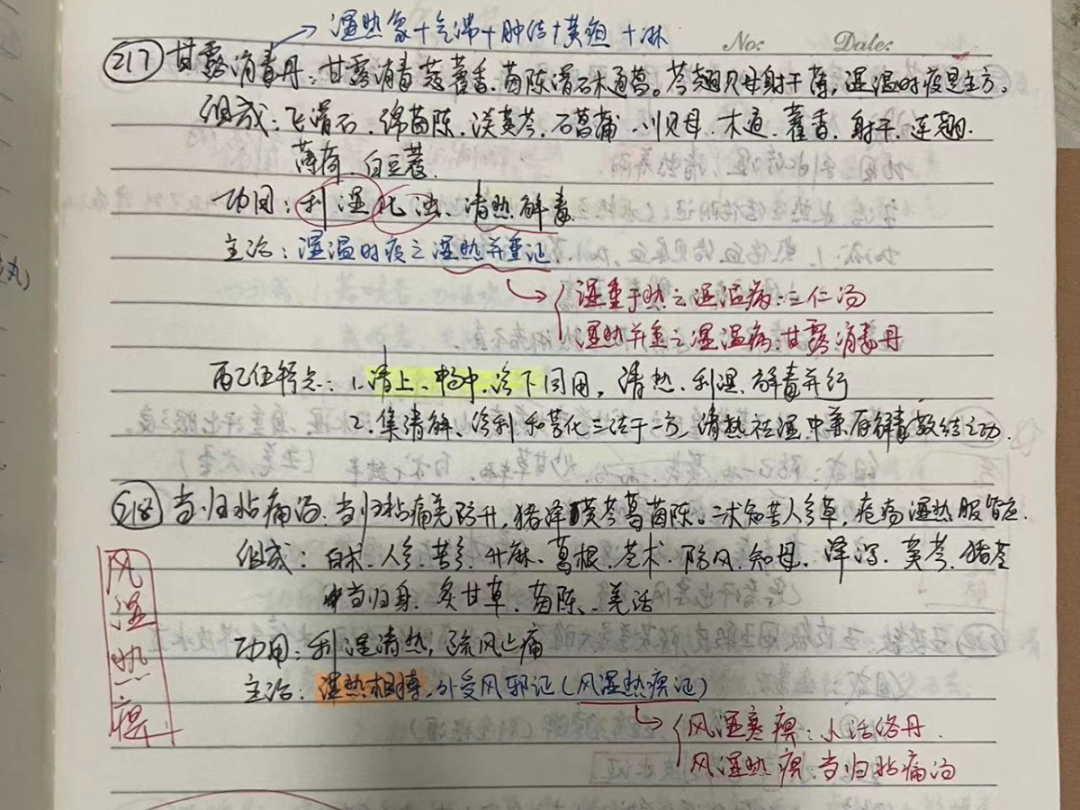 湿热象+气滞+肿结+黄疸+淋
No:  Date:
217 甘露消毒丹:甘露消毒蔻藿香,茵陈滑石木通菖。芩翘贝母射干薄,湿温时疫是主方。
组成:飞滑石、绵茵陈、淡黄芩、石菖蒲、川贝母、木通、藿香、射干、连翘、
薄荷、白豆蔻
功用:利湿化浊、清热解毒
主治:湿温时疫之湿热并重证
湿重于热之湿温病:三仁汤
湿热并重之湿温病:甘露消毒丹
配伍特点:1.清上、畅中、渗下同用,清热、利湿、解毒并行
2.集清解、渗利和芳化三法于一方,清热祛湿中兼有解毒散结之功.
218 当归拈痛汤:当归拈痛羌防升,猪泽芩葛茵陈。二术知苦人参草,疮疡湿热服皆应.
风湿热痹
组成:白术、人参、苦参、升麻、葛根、苍术、防风、知母、泽泻、黄芩、猪苓
当归身、炙甘草、茵陈、羌活
功用:利湿清热,疏风止痛
主治:湿热相搏,外受风邪证(风湿热痹证)
风湿寒痹:小活络丹
风湿热痹:当归拈痛汤
丸)